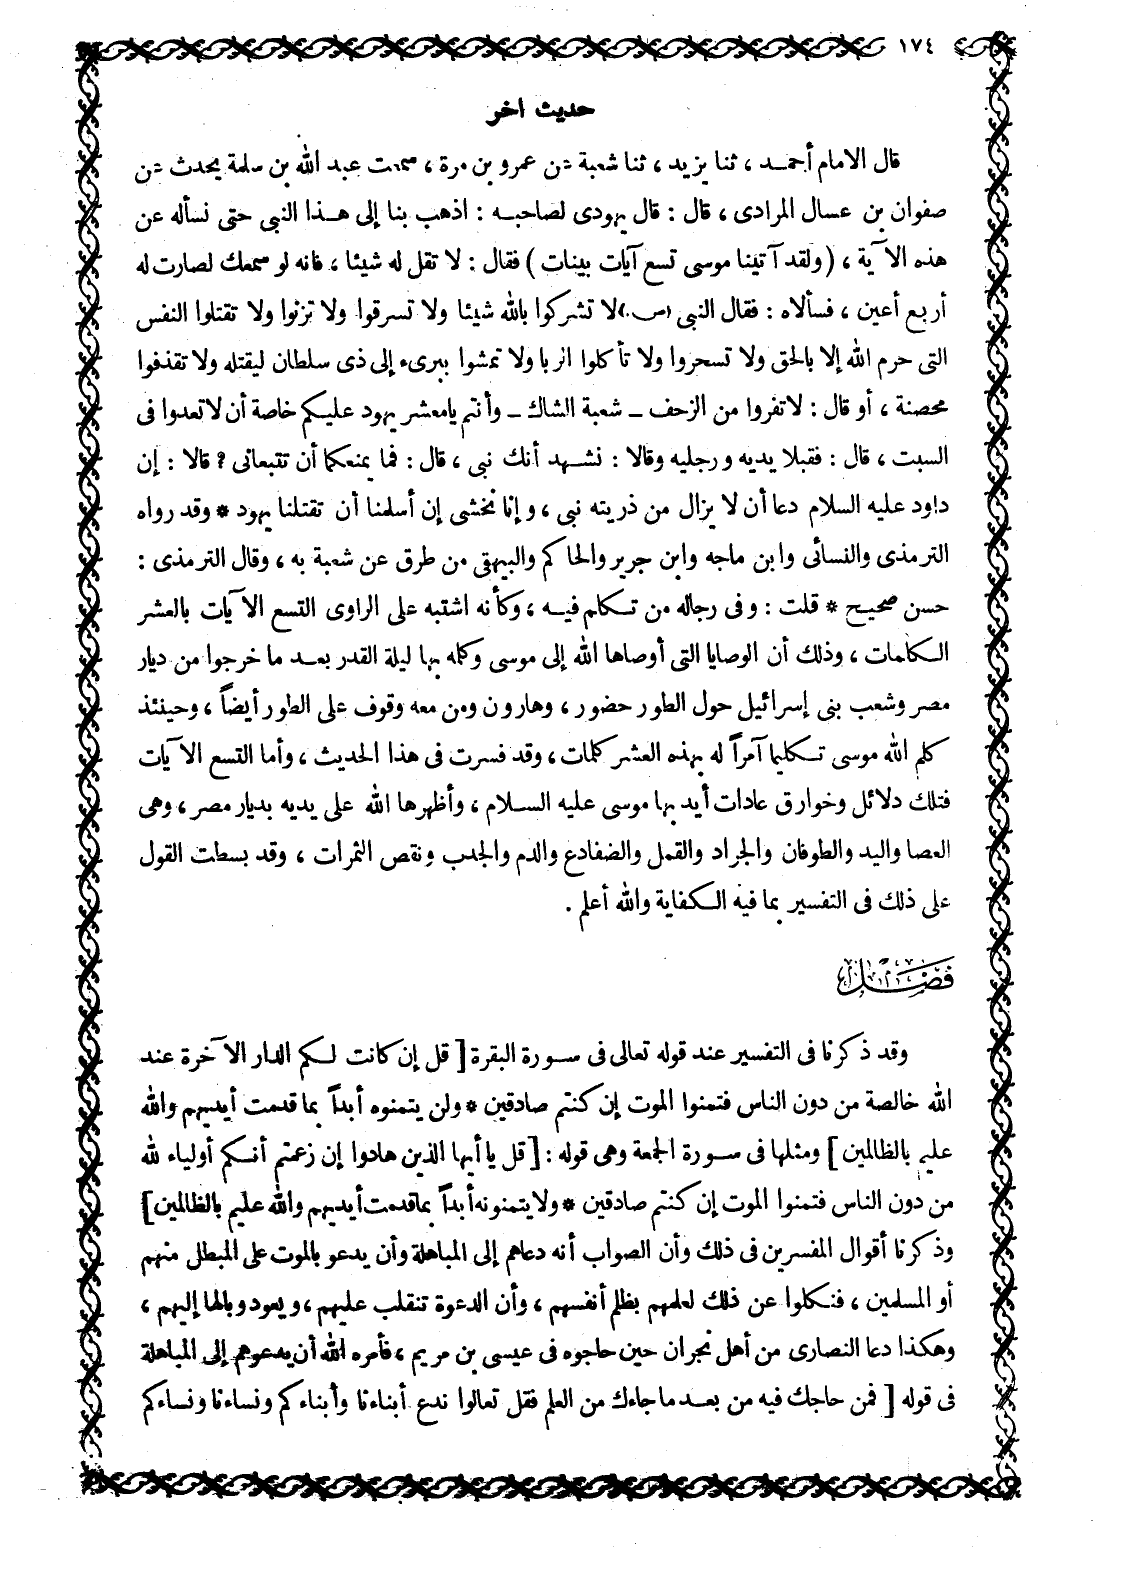 ١٧٤
حديث اخر
قال الامام أحمد ، ثنا يزيد ، ثنا شعبة عن عمرو بن مرة ، سمعت عبد الله بن سلمة يحدث عن
صفوان بن عسال المرادى ، قال : قال يهودى لصاحبه : اذهب بنا إلى هذا النبى حتى نسأله عن
هذه الآية ، (ولقد آتينا موسى تسع آيات بينات) فقال : لا تقل له شيئا ، فانه لو سمعك لصارت له
أربع أعين ، فسألاه : فقال النبى (ص.) لا تشركوا بالله شيئا ولا تسرقوا ولا تزنوا ولا تقتلوا النفس
التى حرم الله إلا بالحق ولا تسحروا ولا تأكلوا الربا ولا تمشوا ببرىء إلى ذى سلطان ليقتله ولا تقذفوا
محصنة ، أو قال : لا تفروا من الزحف ـ شعبة الشاك ـ وأنتم يامعشر يهود عليكم خاصة أن لا تعدوا فى
السبت ، قال : فقبلا يديه ورجليه وقالا : نشهد أنك نبى ، قال : فما يمنعكما أن تتبعانى ؟ قالا : إن
داود عليه السلام دعا أن لا يزال من ذريته نبى ، وإنا نخشى إن أسلمنا أن تقتلنا يهود * وقد رواه
الترمذى والنسائى وابن ماجه وابن جرير والحاكم والبيهقى من طرق عن شعبة به ، وقال الترمذى :
حسن صحيح * قلت : وفى رجاله من تكلم فيه ، وكأنه اشتبه على الراوى التسع الآيات بالعشر
الكلمات ، وذلك أن الوصايا التى أوصاها الله إلى موسى وكلمه بها ليلة القدر بعد ما خرجوا من ديار
مصر وشعب بنى إسرائيل حول الطور حضور ، وهارون ومن معه وقوف على الطور أيضاً ، وحينئذ
كلم الله موسى تكليما آمراً له بهذه العشر كلمات ، وقد فسرت فى هذا الحديث ، وأما التسع الآيات
فتلك دلائل وخوارق عادات أيد بها موسى عليه السلام ، وأظهرها الله على يديه بديار مصر ، وهى
العصا واليد والطوفان والجراد والقمل والضفادع والدم والجدب ونقص الثمرات ، وقد بسطت القول
على ذلك فى التفسير بما فيه الكفاية والله أعلم .
فصل
وقد ذكرنا فى التفسير عند قوله تعالى فى سورة البقرة [ قل إن كانت لكم الدار الآخرة عند
الله خالصة من دون الناس فتمنوا الموت إن كنتم صادقين * ولن يتمنوه أبداً بما قدمت أيديهم والله
عليم بالظالمين ] ومثلها فى سورة الجمعة وهى قوله : [ قل يا أيها الذين هادوا إن زعمتم أنكم أولياء لله
من دون الناس فتمنوا الموت إن كنتم صادقين * ولا يتمنونه أبداً بما قدمت أيديهم والله عليم بالظالمين ]
وذكرنا أقوال المفسرين فى ذلك وأن الصواب أنه دعاهم إلى المباهلة وأن يدعو بالموت على المبطل منهم
أو المسلمين ، فنكلوا عن ذلك لعلمهم بظلم أنفسهم ، وأن الدعوة تنقلب عليهم ، ويعود وبالها إليهم ،
وهكذا دعا النصارى من أهل نجران حين حاجوه فى عيسى بن مريم ، فأمره الله أن يدعوهم إلى المباهلة
فى قوله [ فمن حاجك فيه من بعد ما جاءك من العلم فقل تعالوا ندع أبناءنا وأبناءكم ونساءنا ونساءكم